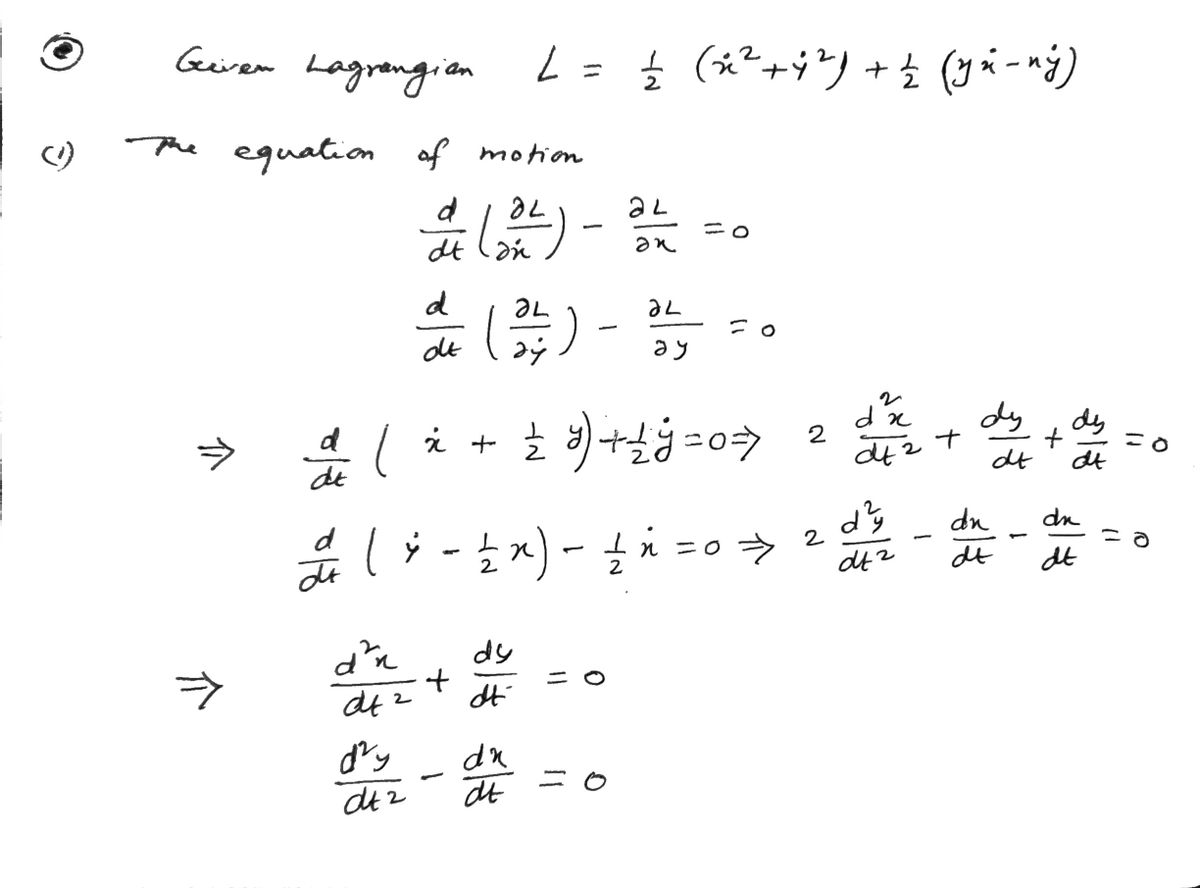 Given Lagrangian L = 1/2 (ẋ² + ẏ²) + 1/2 (yẋ - xẏ)
(1) The equation of motion
d/dt (∂L/∂ẋ) - ∂L/∂x = 0
d/dt (∂L/∂ẏ) - ∂L/∂y = 0
⇒ d/dt (ẋ + 1/2 y) + 1/2 ẏ = 0 ⇒ 2 d²x/dt² + dy/dt + dy/dt = 0
d/dt (ẏ - 1/2 x) - 1/2 ẋ = 0 ⇒ 2 d²y/dt² - dx/dt - dx/dt = 0
⇒ d²x/dt² + dy/dt = 0
d²y/dt² - dx/dt = 0